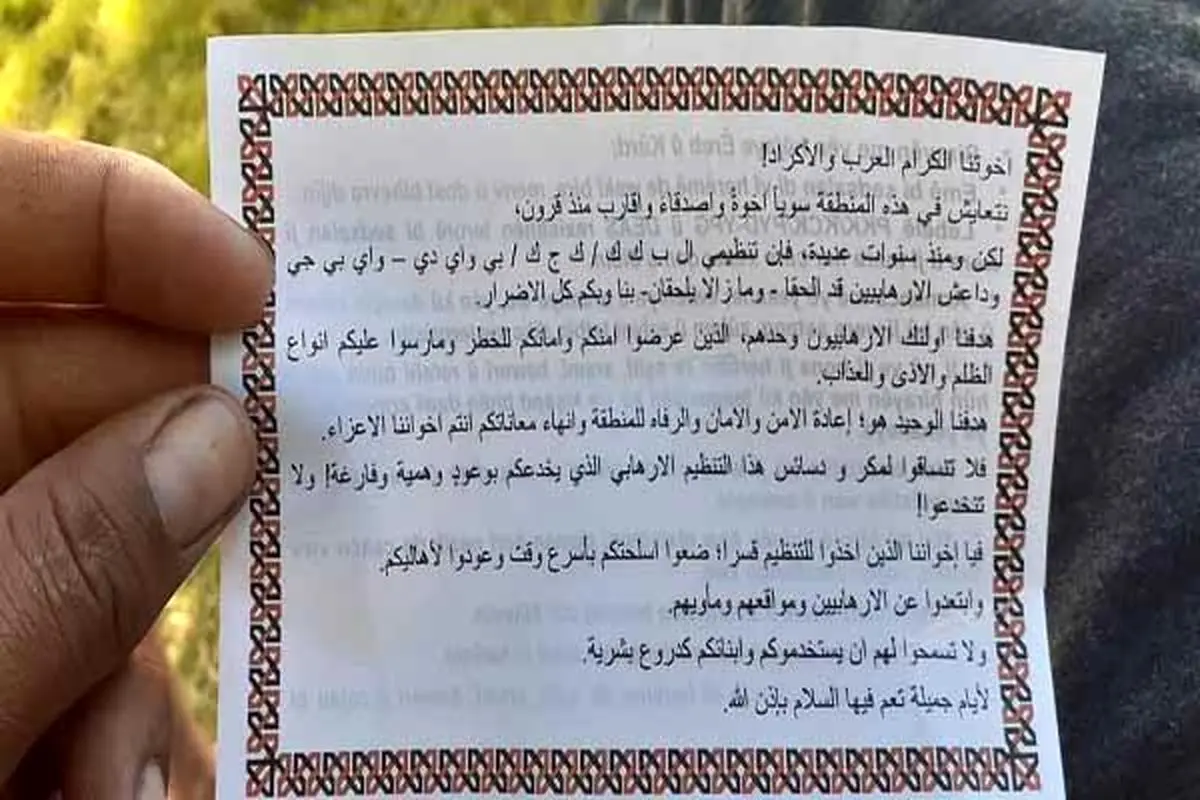 اخوتنا الكرام العرب والاكراد!
نتعايش في هذه المنطقة سوياً اخوة واصدقاء واقارب منذ قرون،
لكن ومنذ سنوات عديدة، فإن تنظيمي ال ب ك ك / ك ج ك / بي واي دي – واي بي جي
وداعش الارهابيين قد الحقا - وما زالا يلحقان- بنا وبكم كل الاضرار.
هدفنا اولئك الارهابيون وحدهم، الذين عرضوا امنكم وامانكم للخطر ومارسوا عليكم انواع
الظلم والاذى والعذاب.
هدفنا الوحيد هو؛ إعادة الامن والامان والرفاه للمنطقة وانهاء معاناتكم انتم اخواننا الاعزاء.
فلا تنساقوا لمكر و دسائس هذا التنظيم الارهابي الذي يخدعكم بوعودٍ وهمية وفارغة! ولا
تنخدعوا!
فيا إخواننا الذين اخذوا للتنظيم قسرا؛ ضعوا اسلحتكم بأسرع وقت وعودوا لأهاليكم.
وابتعدوا عن الارهابيين ومواقعهم ومأويهم.
ولا تسمحوا لهم ان يستخدموكم وابنائكم كدروع بشرية.
لأيام جميلة تعم فيها السلام بإذن الله.